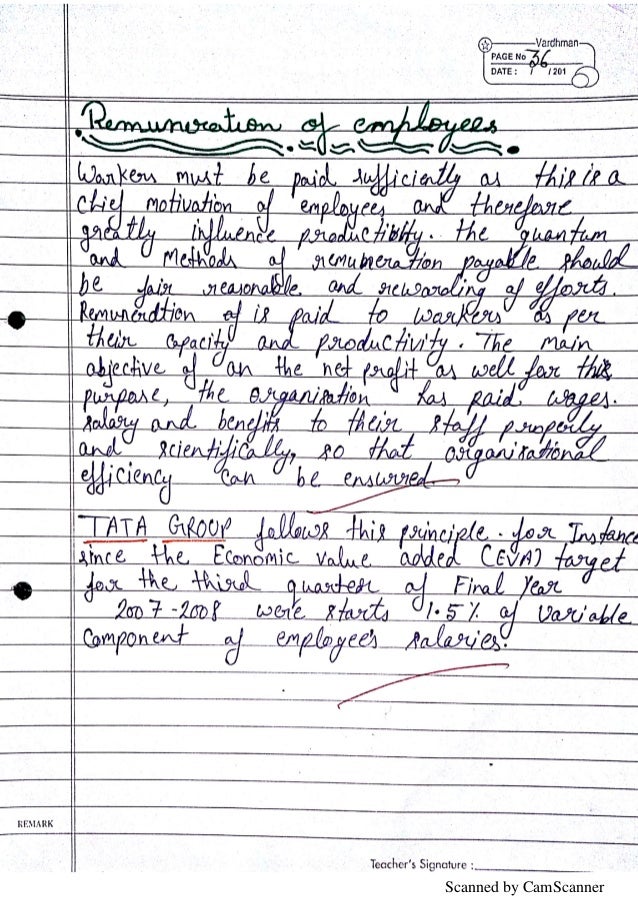 Vardhman
PAGE No 36
DATE: / /201 6
Remuneration of employees.
Workers must be paid sufficiently as this is a
chief motivation of employees and therefore
greatly influence productivity. the quantum
and Methods of remuneration payable should
be fair reasonable and rewarding of efforts.
Remunerdtion of is paid to workers as per
their capacity and productivity. The main
objective of an the net profit as well for this
purpose, the organisation has paid wages.
salary and benefits to their staff properly
and scientifically, so that organisational
efficiency can be ensurred
TATA GROUP follows this principle. for Instance
since the Economic value added (EVA) target
for the third quarter of Final Year
2007-2008 were starts 1.5% of variable
Component of employee's salaries.
REMARK
Teacher's Signature :
Scanned by CamScanner